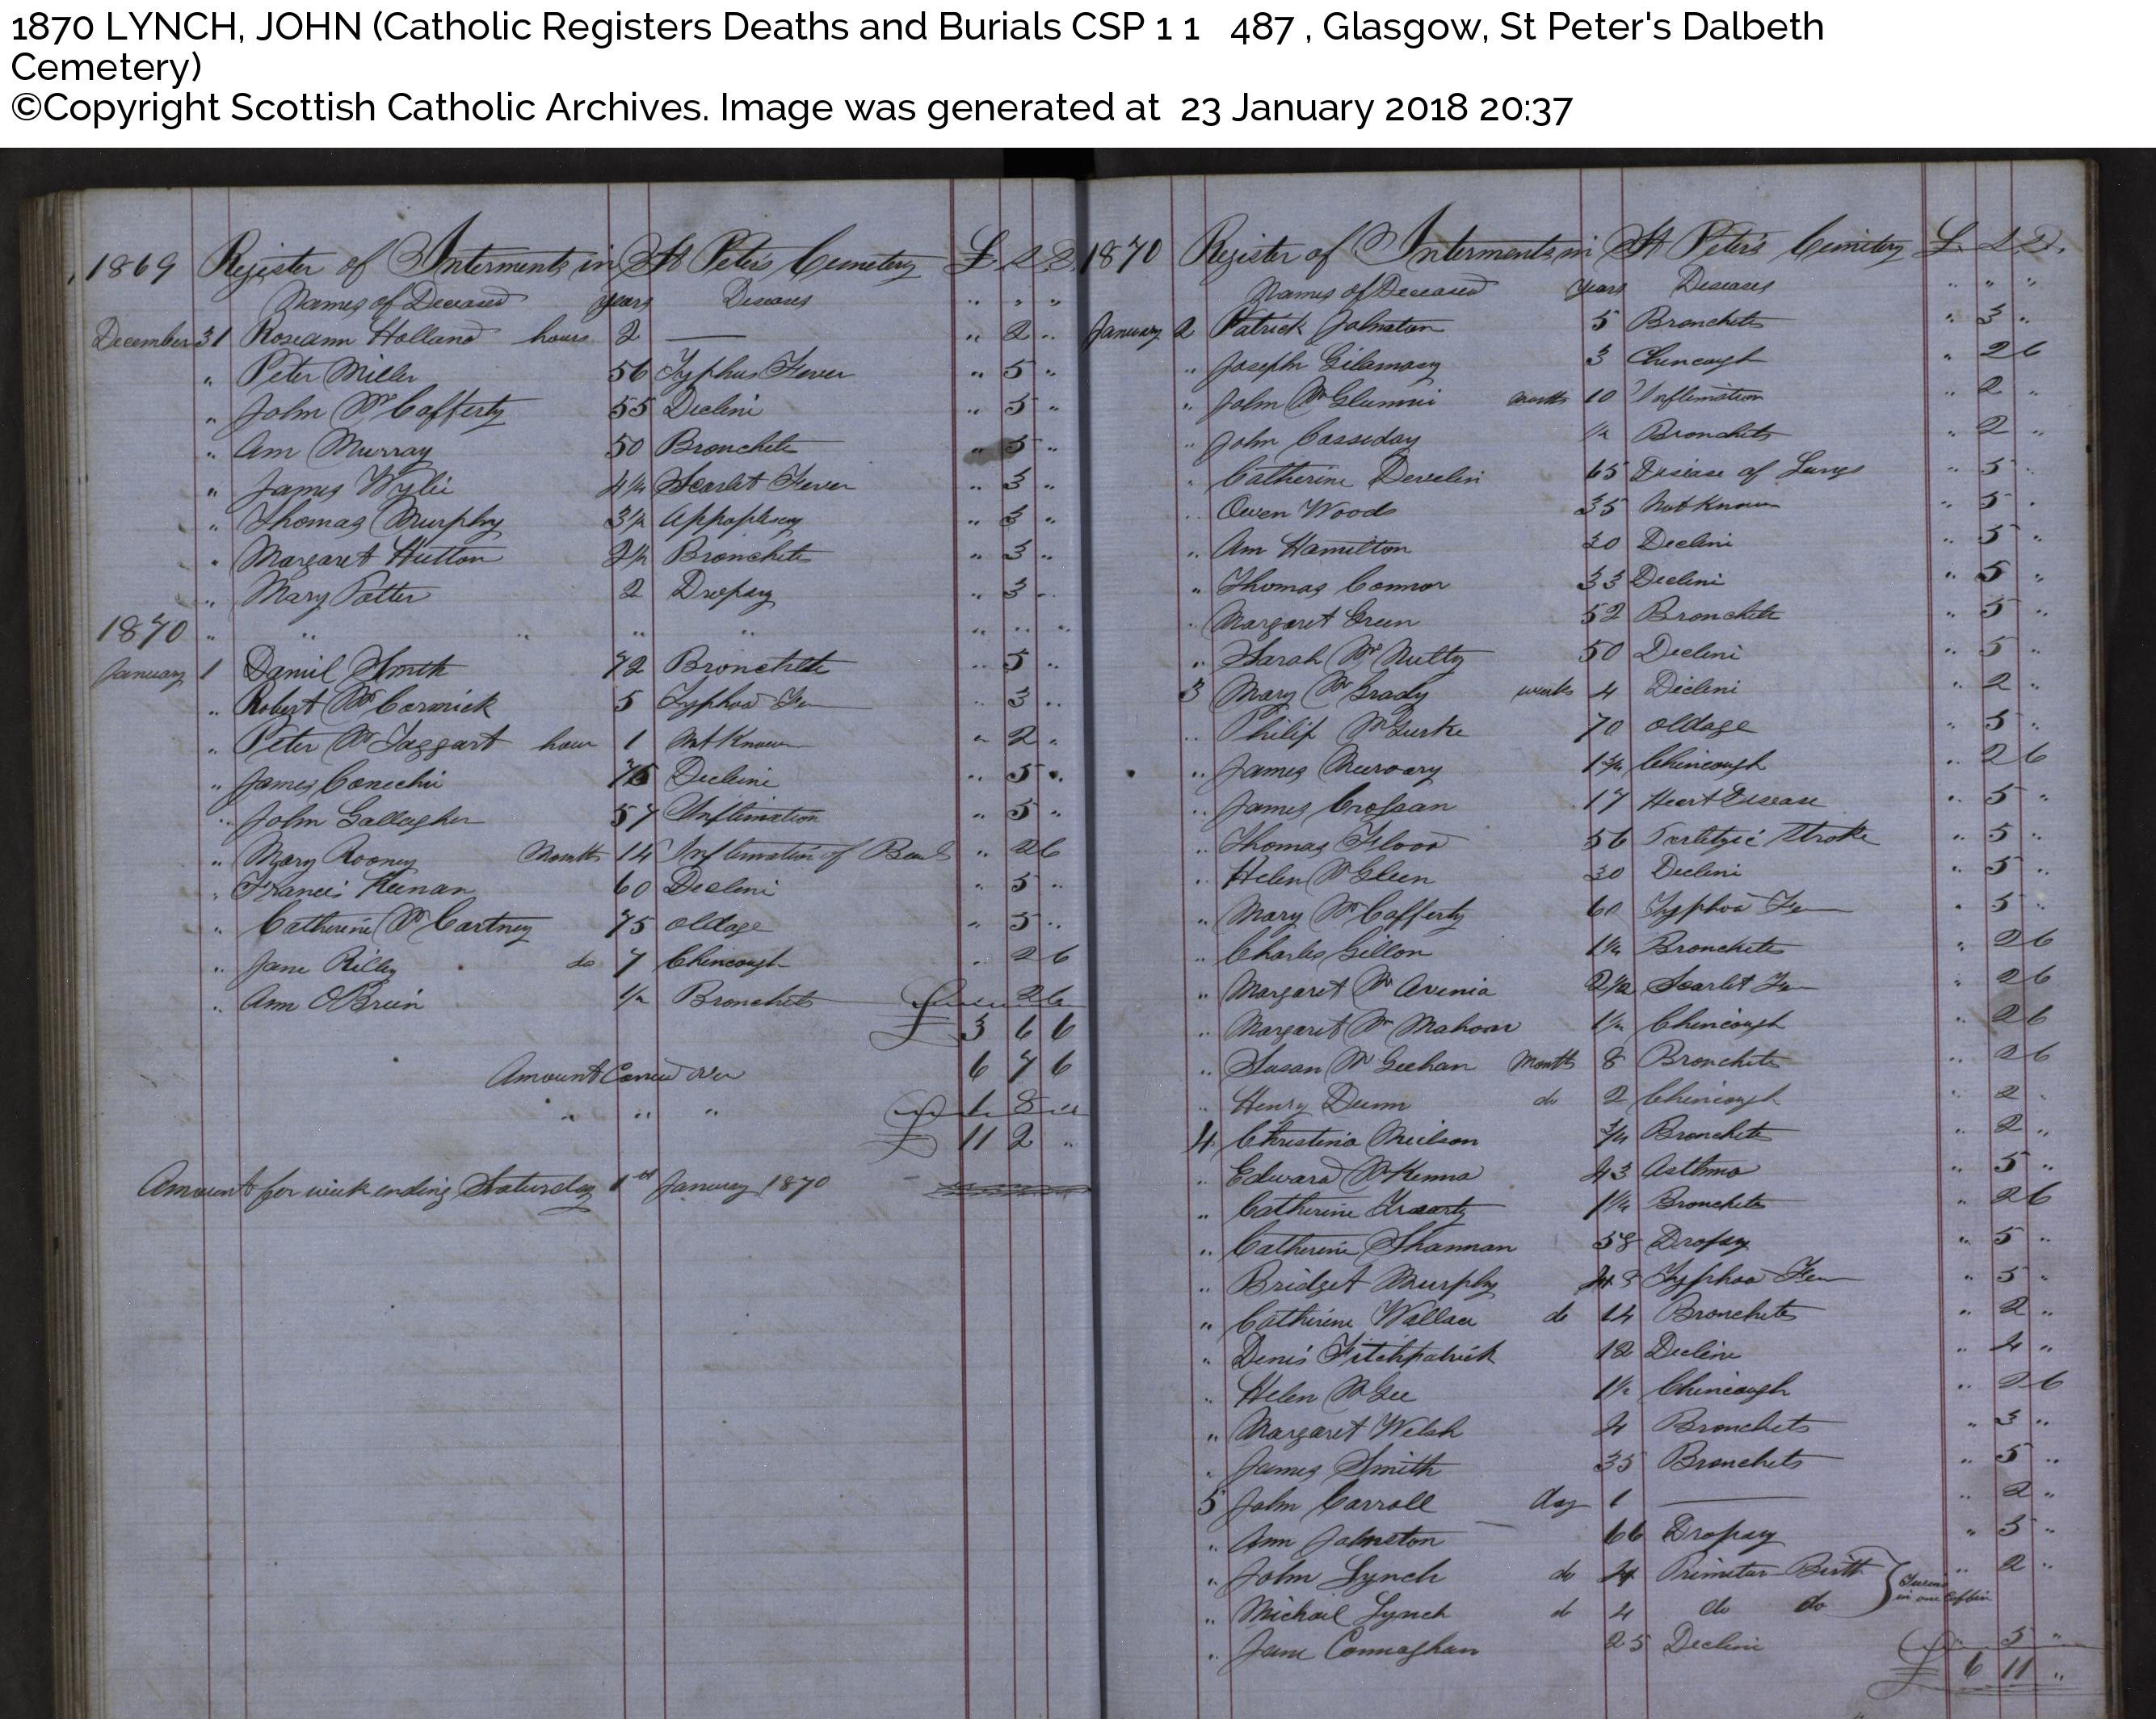 1870 LYNCH, JOHN (Catholic Registers Deaths and Burials CSP 1 1 487 , Glasgow, St Peter's Dalbeth
Cemetery)
©Copyright Scottish Catholic Archives. Image was generated at 23 January 2018 20:37
1869 Register of Interments in St Peter's Cemetery £ S D
Names of Deceased Years Diseases " " "
December 31 Roseann Holland hours 2 — " 2 "
" Peter Miller 56 Typhus Fever " 5 "
" John McCafferty 55 Declini " 5 "
" Ann Murray 50 Bronchets " 5 "
" James Wylie 4 1/2 Scarlet Fever " 3 "
" Thomas Murphy 3 1/2 Appoplescy " 3 "
" Margaret Hutton 2 1/2 Bronchets " 3 "
" Mary Potter 2 Dropsy " 3 "
1870 " " " " " " " "
January 1 Daniel Smith 72 Bronchets " 5 "
" Robert McCormick 5 Typhoo Fe " 3 "
" Peter McTaggart hour 1 Not Known " 2 "
" James 75 Decline " 5 "
" John Gallagher 57 Inflimation " 5 "
" Mary Rooney Months 14 Inflimation of " 2 6
" Francis Keenan 60 Declini " 5 "
" Catherine McCartney 75 oldage " 5 "
" Jane Rilley do 7 Chincough " 2 6
" Ann O'Brien 1/2 Bronchets 2 6
£ 3 6 6
Amount Carried over 6 7 6
" " " 1 8 "
£ 11 2 "
Amount for week ending Saturday 1st January 1870
1870 Register of Interments in St Peter's Cimitery £ S D
Names of Deceased Years Diseases " " "
January 2 Patrick Johnston 5 Bronchets " 3 "
" Joseph Gilamary 3 Chincough " 2 6
" John McGlumni months 10 Inflimation " 2 "
" John Cassiday 1/2 Bronchets " 2 "
" Catherine Develin 65 Disease of Lungs " 5 "
" Owen Woods 35 Not Known " 5 "
" Ann Hamilton 30 Declini " 5 "
" Thomas Connor 33 Declini " 5 "
" Margaret Green 52 Bronchets " 5 "
" Sarah McNulty 50 Declini " 5 "
3 Mary McGrady weeks 4 Diclini " 2 "
" Philip McGurke 70 oldage " 5 "
" James 1 3/4 Chincough " 2 6
" James Crossan 17 Heart Disease " 5 "
" Thomas Flood 56 Stroke " 5 "
" Helen McGleen 30 Declini " 5 "
" Mary McCafferty 60 Typhoo Fe " 5 "
" Charles Gillon 1 1/2 Bronchets " 2 6
" Margaret McAvenia 2 1/2 Scarlet Fe " 2 6
" Margaret McMahon 1 1/2 Chincough " 2 6
" Susan McGeehan Months 8 Bronchets " 2 6
" Henry Dunn do 2 Chincough " 2 "
4 Christina Neilson 3/4 Bronchets " 2 "
" Edward McKenna 43 Asthma " 5 "
" Catherine 1 1/4 Bronchets " 2 6
" Catherine Shannan 58 Dropsy " 5 "
" Bridget Murphy 48 Typhoo Fev " 5 "
" Catherine Wallace do 14 Bronchets " 2 "
" Denis Fitchpatrick 18 Decline " 4 "
" Helen McGee 1 1/2 Chincough " 2 6
" Margaret Welsh 4 Bronchets " 3 "
" James Smith 35 Bronchets " 5 "
5 John Carroll day 1 — " 2 "
" Ann Johnston 66 Dropsy " 5 "
" John Lynch do 4 Primetur Birth } Tweens " 2 "
" Michail Lynch do 4 do do in one Coffin
" Jane Connaghan 25 Declini " 5 "
£ 6 11 "